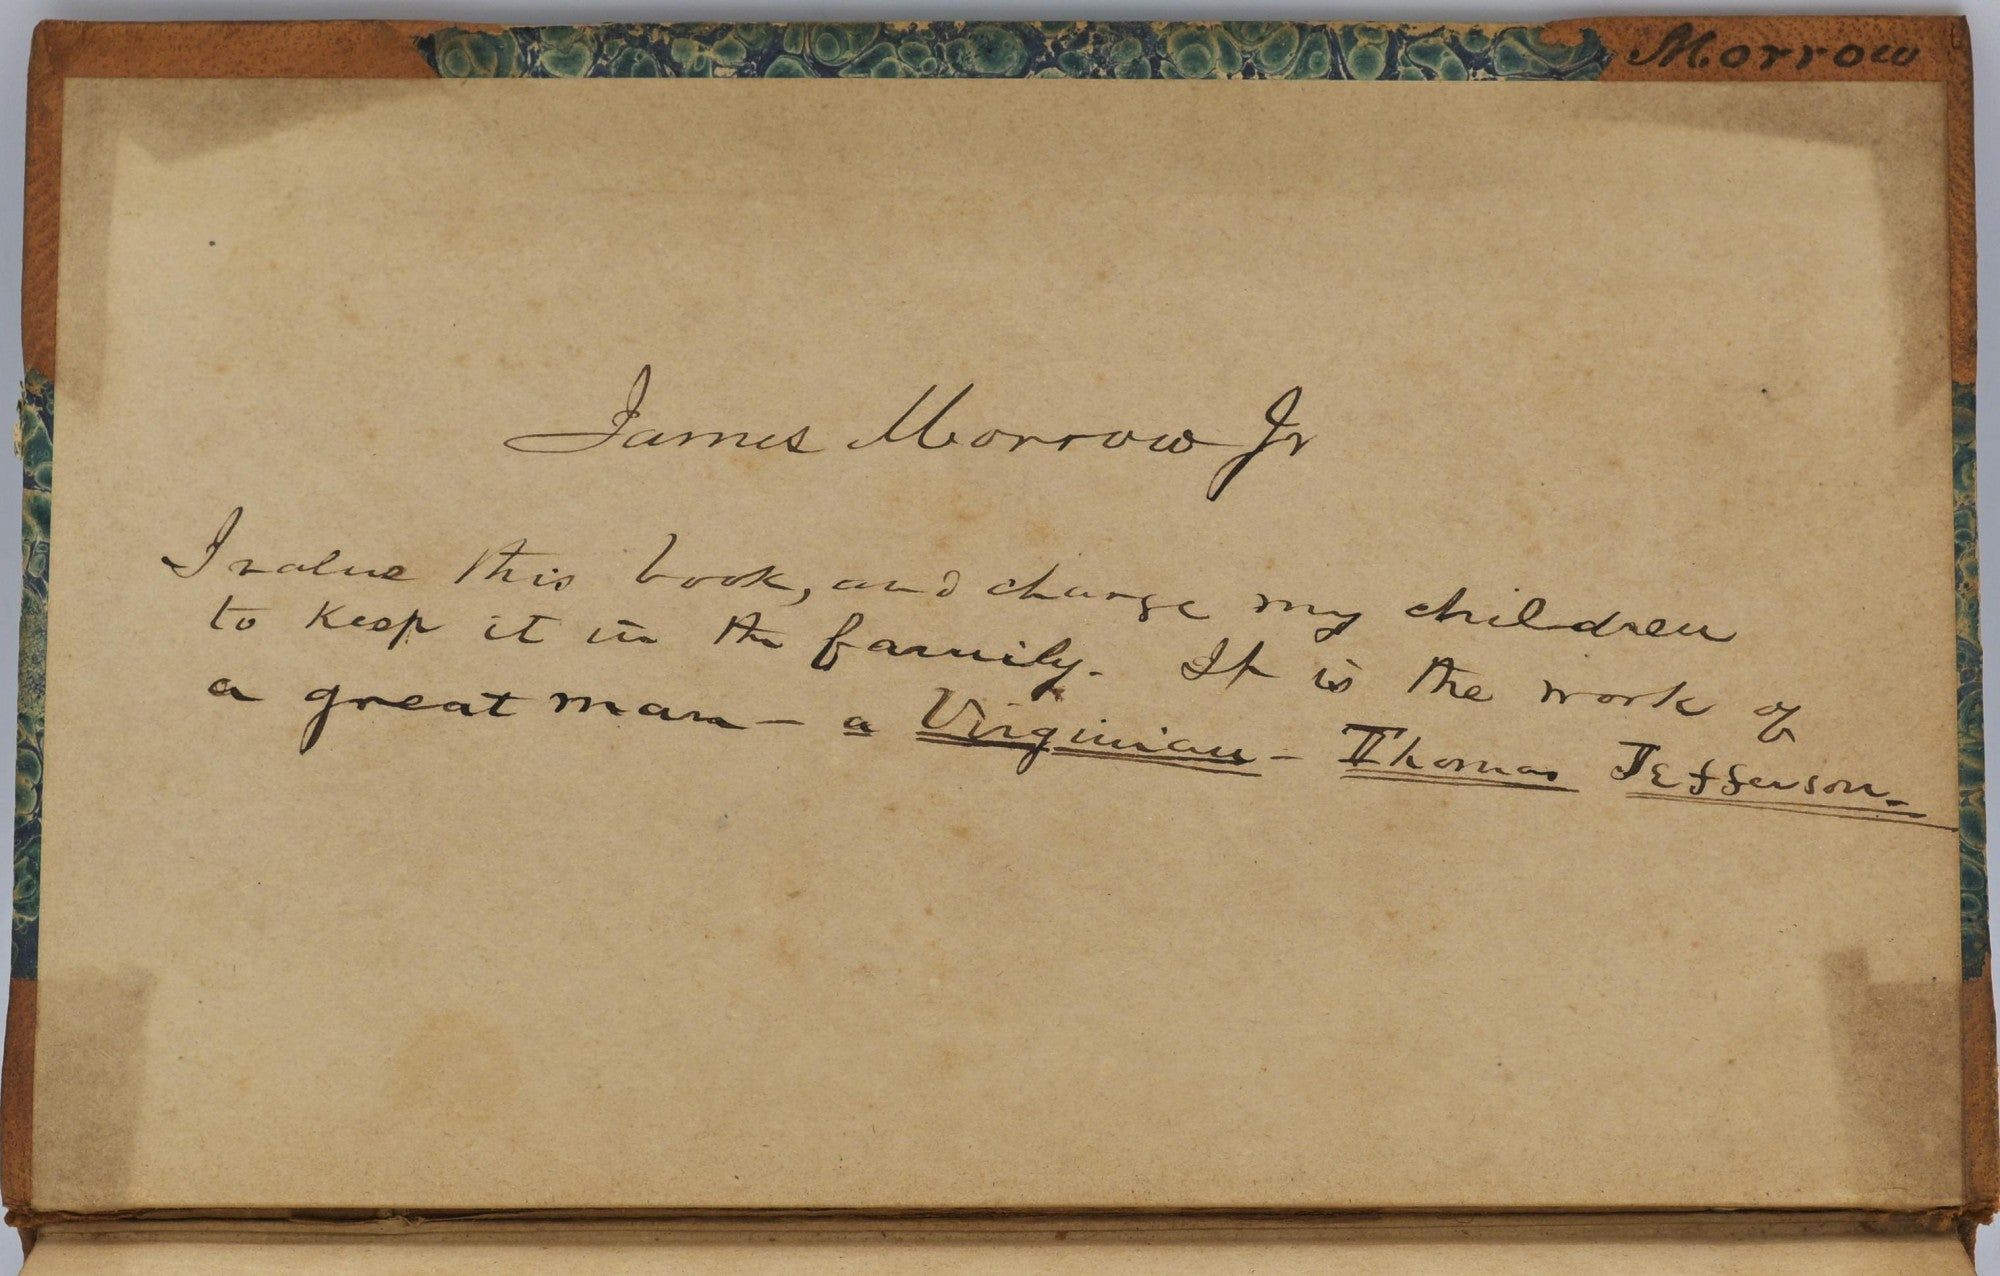 Morrow
James Morrow Jr
I value this book, and charge my children
to keep it in the family. It is the work of
a great man – a Virginian – Thomas Jefferson.